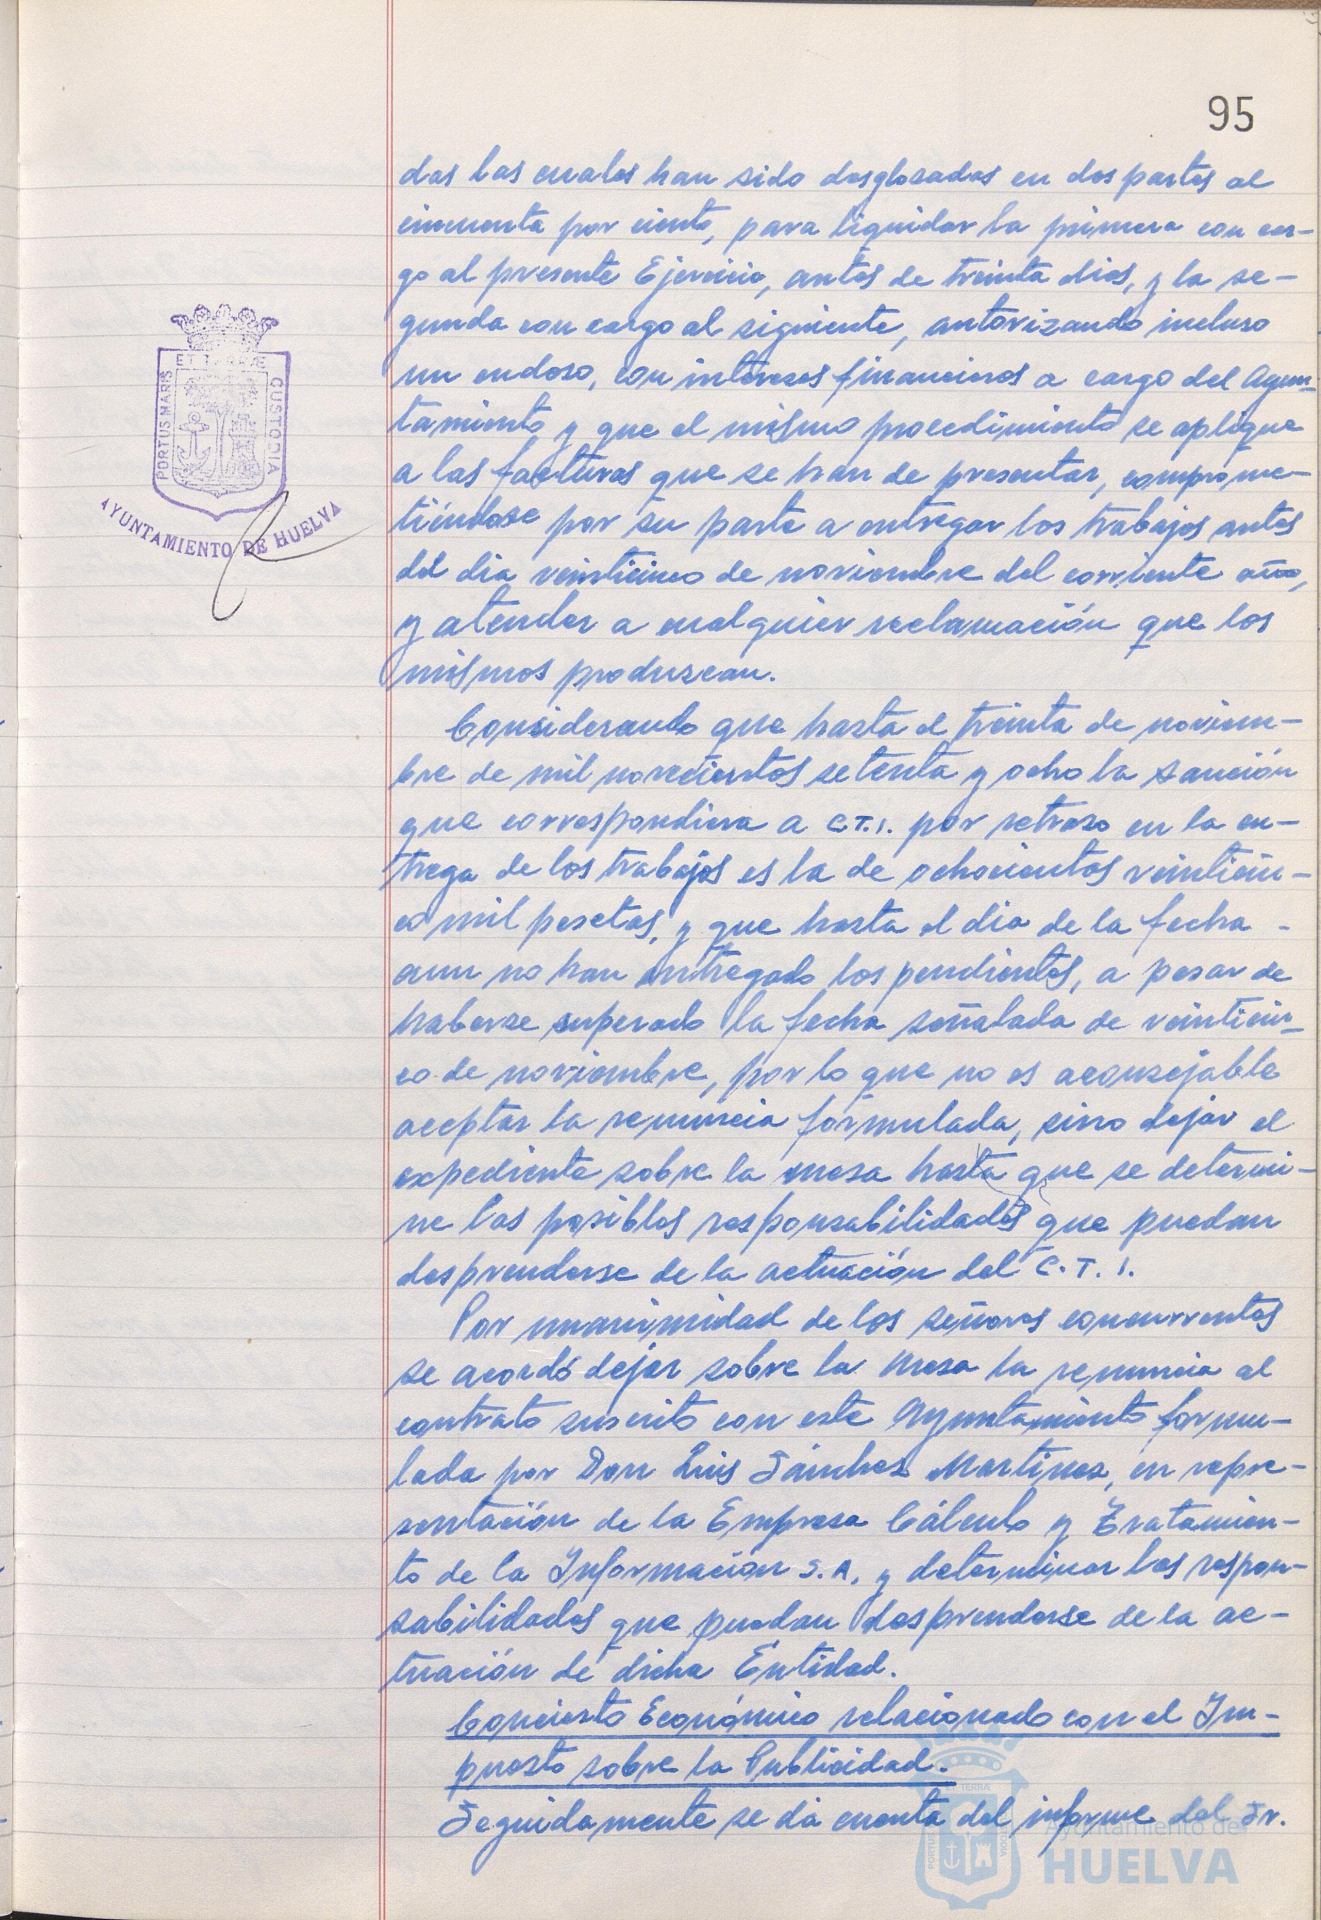 95
das las cuales han sido desglosadas en dos partes al
cincuenta por ciento, para liquidar la primera con car-
go al presente Ejercicio, antes de treinta dias, y la se-
gunda con cargo al siguiente, autorizando incluso
un endoso, con intereses financieros a cargo del Ayun-
tamiento y que el mismo procedimiento se aplique
a las facturas que se han de presentar, comprome-
tiéndose por su parte a entregar los trabajos antes
del dia veinticinco de noviembre del corriente año,
y atender a cualquier reclamación que los
mismos produzcan.
Considerando que hasta el treinta de noviem-
bre de mil novecientos setenta y ocho la sanción
que correspondiera a C.T.I. por retraso en la en-
trega de los trabajos es la de ochocientos veinticin-
co mil pesetas, y que hasta el dia de la fecha -
aun no han entregado los pendientes, a pesar de
haberse superado la fecha señalada de veinticin-
co de noviembre, por lo que no es aconsejable
aceptar la renuncia formulada, sino dejar el
expediente sobre la mesa hasta que se determi-
ne las posibles responsabilidades que puedan
desprenderse de la actuación del C.T.I.
Por unanimidad de los señores concurrentes
se acordó dejar sobre la mesa la renuncia al
contrato suscrito con este Ayuntamiento formu-
lada por Don Luis Sánchez Martinez, en repre-
sentación de la Empresa Cálculo y Tratamien-
to de la Información S.A. y determinar las respon-
sabilidades que puedan desprenderse de la ac-
tuación de dicha Entidad.
Concierto Económico relacionado con el Im-
puesto sobre la Publicidad.
Seguidamente se da cuenta del informe del Sr.
PORTUS MARIS ET TERRÆ CUSTODIA
AYUNTAMIENTO DE HUELVA
Ayuntamiento de
HUELVA